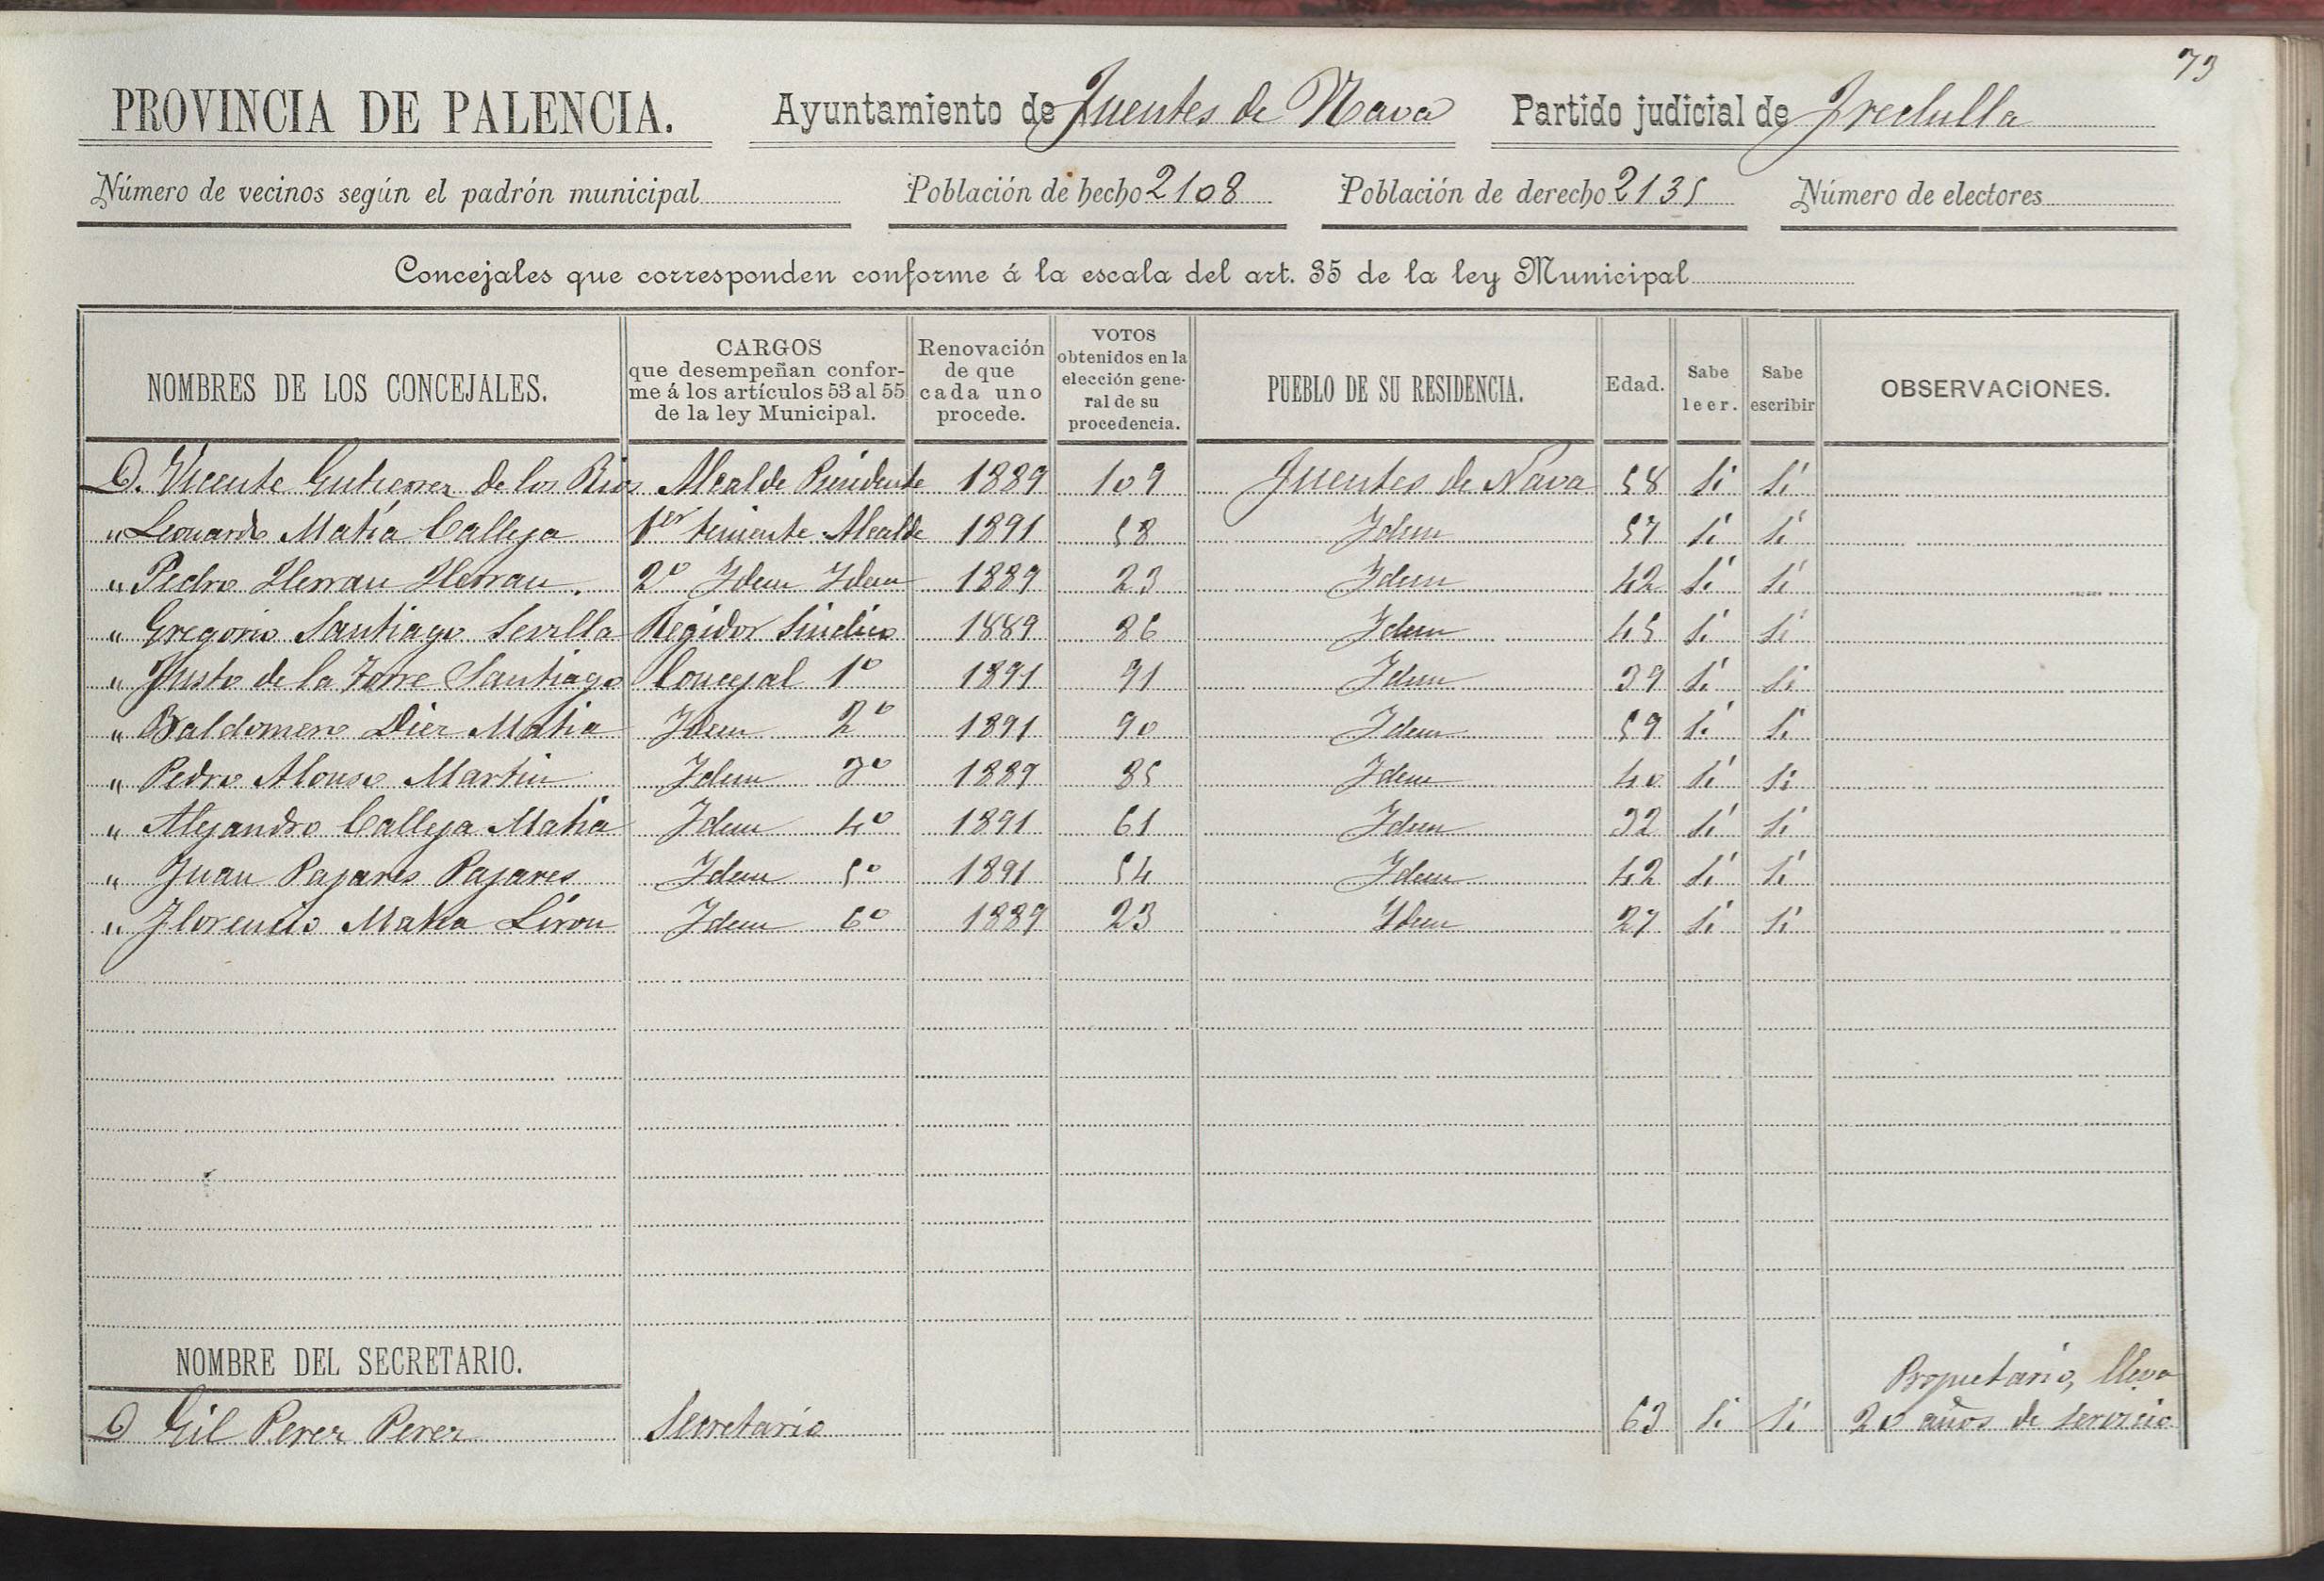 73
PROVINCIA DE PALENCIA. Ayuntamiento de Fuentes de Nava Partido judicial de Frechilla
Número de vecinos según el padrón municipal Población de hecho 2108 Población de derecho 2135 Número de electores
Concejales que corresponden conforme á la escala del art. 35 de la ley Municipal
NOMBRES DE LOS CONCEJALES. CARGOS que desempeñan confor-me á los artículos 53 al 55 de la ley Municipal. Renovación de que cada uno procede. VOTOS obtenidos en la elección gene-ral de su procedencia. PUEBLO DE SU RESIDENCIA. Edad. Sabe leer. Sabe escribir OBSERVACIONES.
D. Vicente Gutierrez de los Rios Alcalde Presidente 1889 109 Fuentes de Nava 58 Si Si
" Leonardo Matía Calleja 1er teniente Alcalde 1891 58 Idem 57 Si Si
" Pedro Herran Herran. 2º Idem Idem 1889 23 Idem 42 Si Si
" Gregorio Santiago Sevilla Regidor Sindico 1889 86 Idem 45 Si Si
" Justo de la Torre Santiago Concejal 1º 1891 91 Idem 39 Si Si
" Baldomero Diez Matia Idem 2º 1891 90 Idem 59 Si Si
" Pedro Alonso Martin Idem 3º 1889 85 Idem 40 Si Si
" Alejandro Calleja Matia Idem 4º 1891 61 Idem 32 Si Si
" Juan Pajares Pajares Idem 5º 1891 54 Idem 42 Si Si
" Florencio Matia Liron Idem 6º 1889 23 Idem 27 Si Si
NOMBRE DEL SECRETARIO.
D Gil Perez Perez Secretario 63 Si Si Propietario, lleva
20 años de servicio